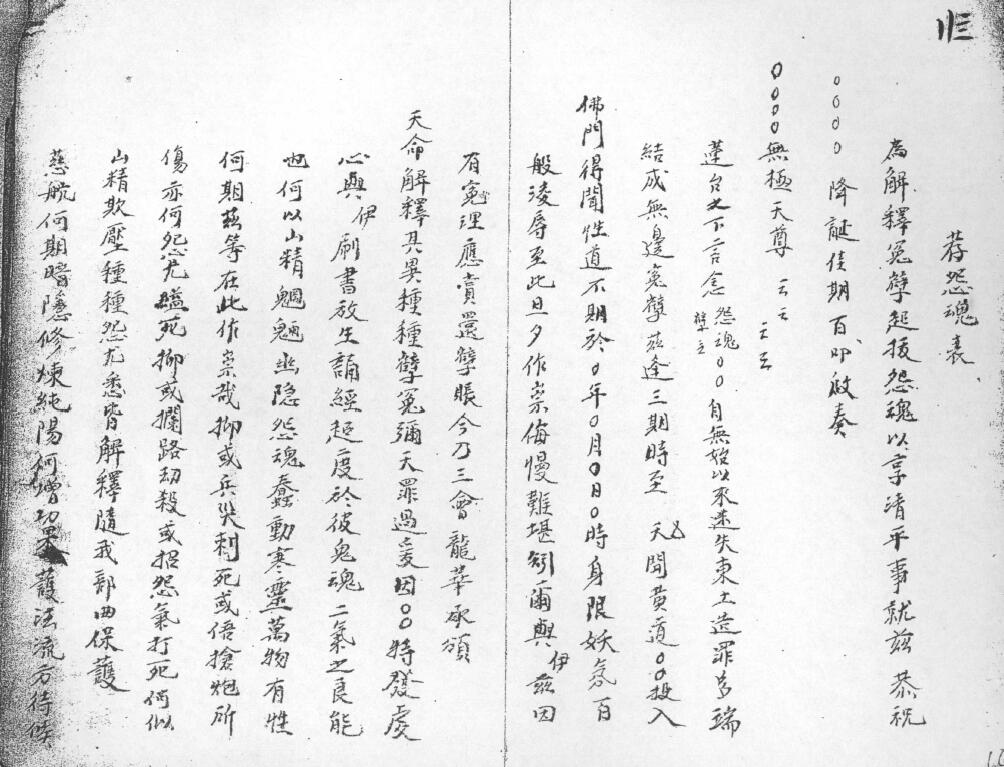 荐怨魂表
為解釋冤孽起拔怨魂以享清平事就兹恭祝
○○○○降誕佳期百叩啟奏
○○○○無極天尊 云云 云云
蓮台之下言念 怨魂 孽主 ○○自無始以來迷失東土造罪多端
結成無邊冤孽茲逢三期時至 天開黃道○○投入
佛門得聞性道不期於○年○月○日○時身限妖氛百
般淩辱至此旦夕作祟侮慢難堪 爾與伊茲因
有冤理應賞還孽賬今乃三會龍華承頒
天命解釋具異種種孽冤彌天罪過爰因○○特發處
心與伊刷書放生誦經超度於彼鬼魂二氣之良能
也何以山精魍魎幽隐怨魂蠢動寒靈萬物有性
何期茲等在此作祟哉抑或兵災刺死或俉搶炮所
傷亦何怨尤縊死抑或攔路劫殺或招怨氣打死何似
山精欺壓種種怨尤悉皆解釋隨我部曲保護
慈航何期暗隱修煉純陽何增功果護法流方待候